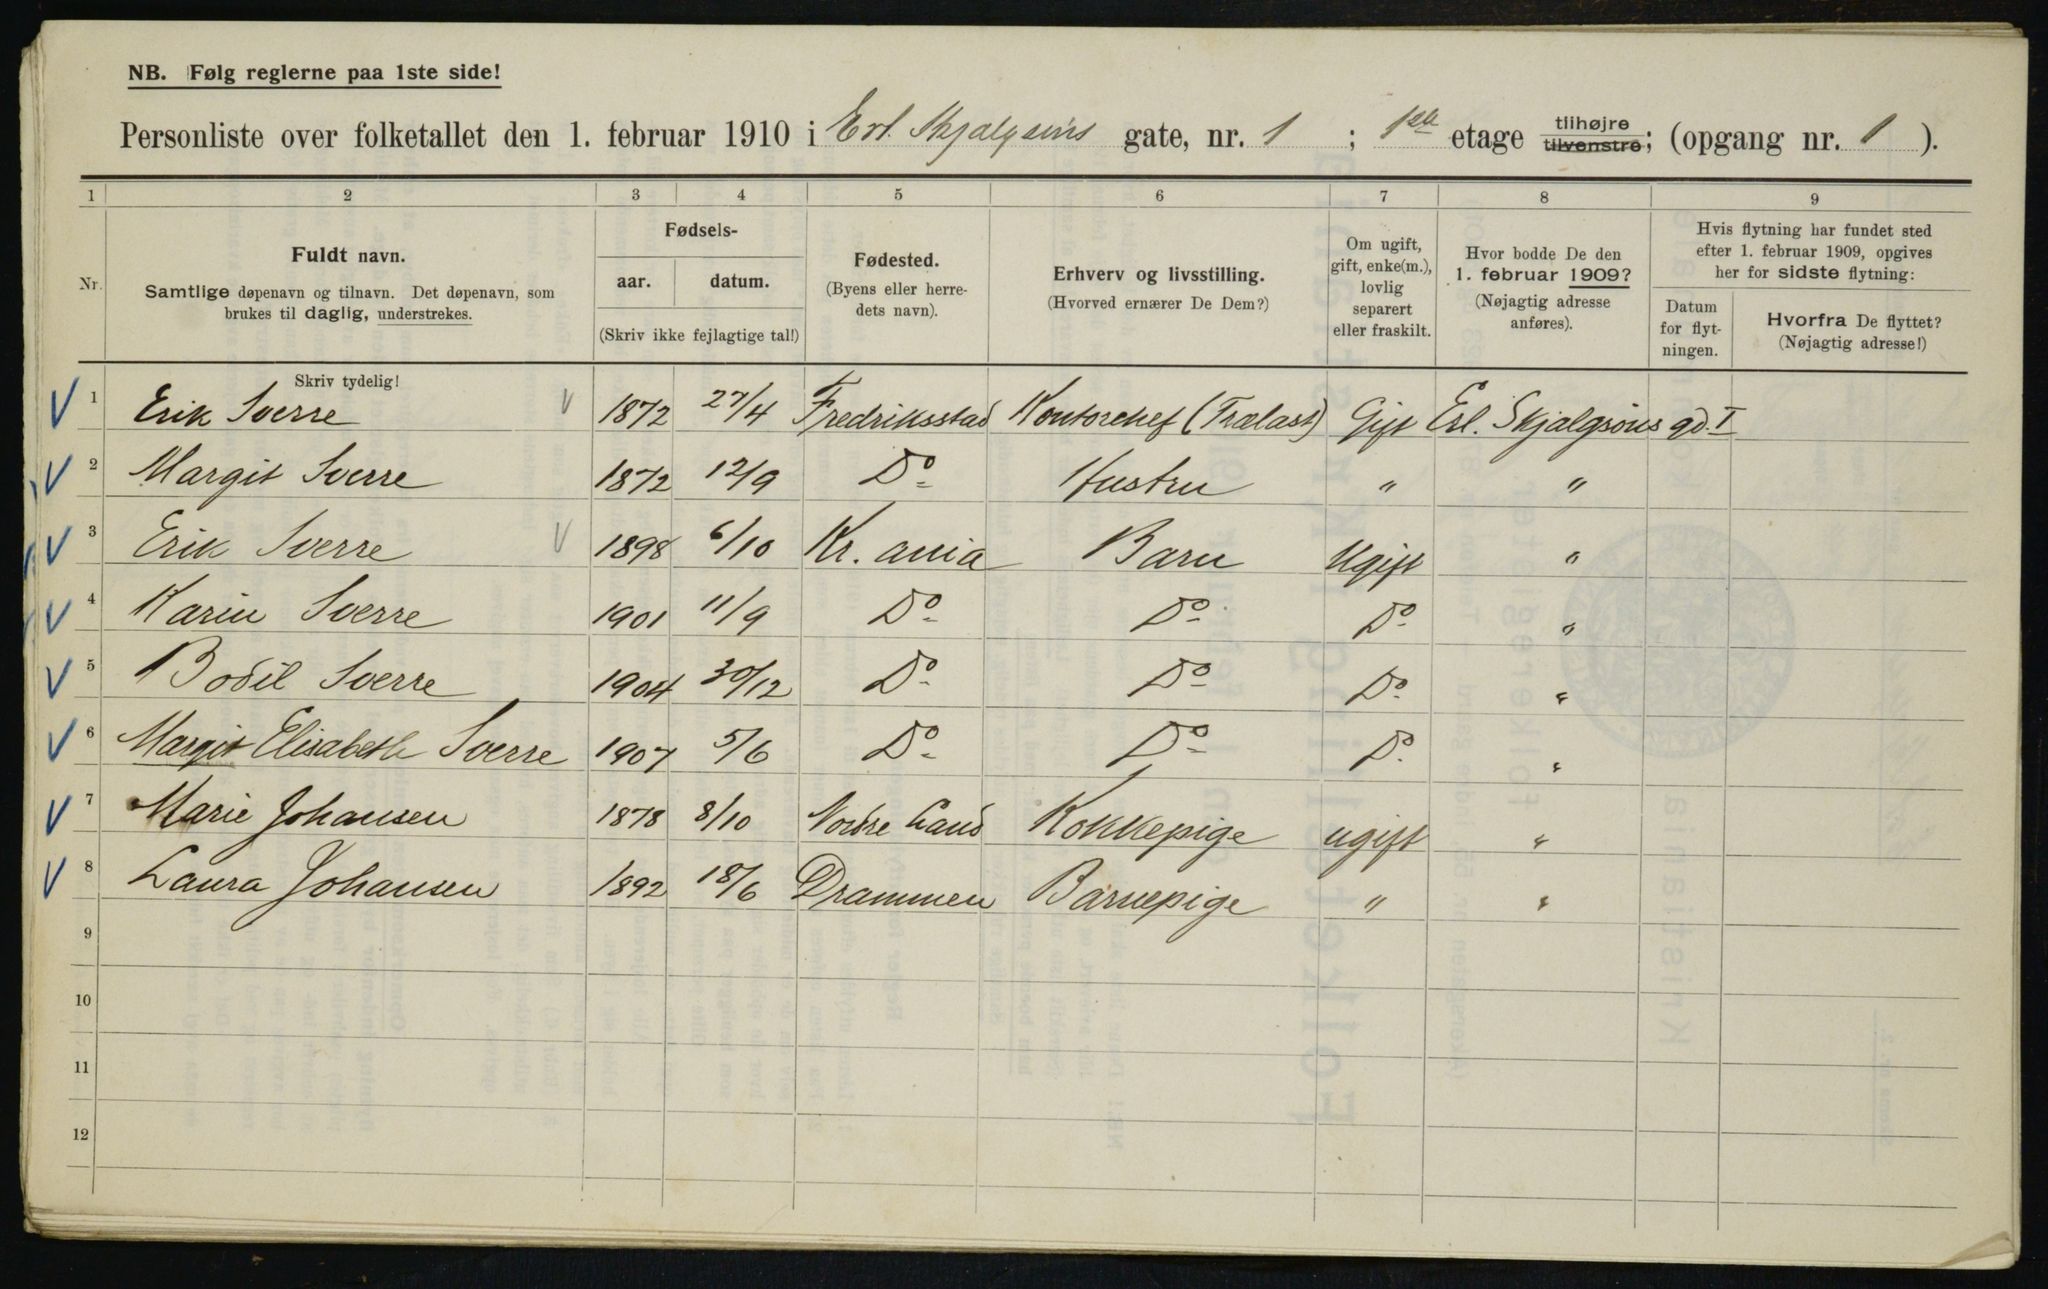 NB. Følg reglerne paa 1ste side!
Personliste over folketallet den 1. februar 1910 i Erl. Skjalgsøns gate, nr. 1 ; 1ste etage tilhøjre tilvenstre; (opgang nr. 1 ).
1 2 3 4 5 6 7 8 9
Nr.
Fuldt navn.
Samtlige døpenavn og tilnavn. Det døpenavn, som
brukes til daglig, understrekes.
Fødsels-
aar. datum.
(Skriv ikke fejlagtige tal!)
Fødested.
(Byens eller herre-
dets navn).
Erhverv og livsstilling.
(Hvorved ernærer De Dem?)
Om ugift,
gift, enke(m.),
lovlig
separert
eller fraskilt.
Hvor bodde De den
1. februar 1909?
(Nøjagtig adresse
anføres).
Hvis flytning har fundet sted
efter 1. februar 1909, opgives
her for sidste flytning:
Datum
for flyt-
ningen.
Hvorfra De flyttet?
(Nøjagtig adresse!)
Skriv tydelig!
1 Erik Sverre 1872 27/4 Fredriksstad Kontorchef (Trælast) Gift Erl. Skjalgsøns gd. I
2 Margit Sverre 1872 12/9 Do Hustru " "
3 Erik Sverre 1898 6/10 Kr.ania Barn Ugift "
4 Karin Sverre 1901 11/9 Do Do Do "
5 Bodil Sverre 1904 30/12 Do Do Do "
6 Margit Elisabeth Sverre 1907 5/6 Do Do Do "
7 Marie Johansen 1878 8/10 Nordre Land Kokkepige ugift "
8 Laura Johansen 1892 18/6 Drammen Barnepige " "
9
10
11
12